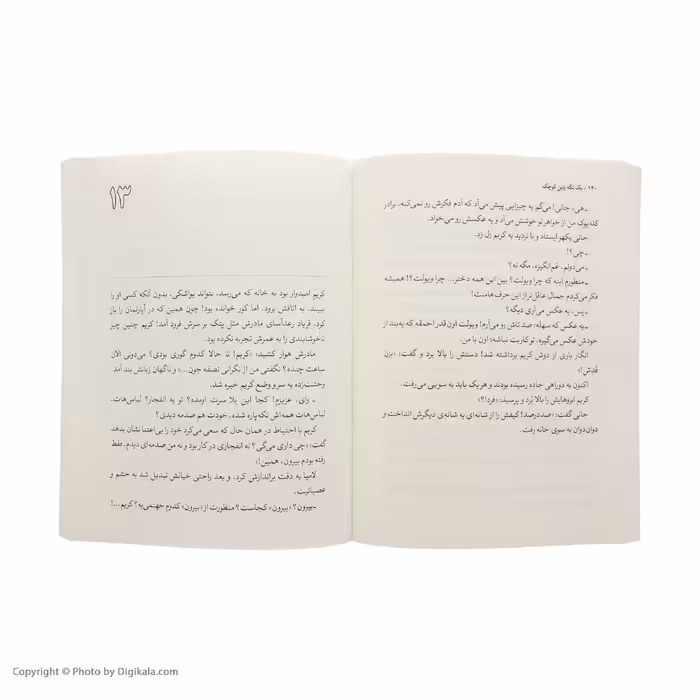 ۱۴۰ / یک تکه زمین کوچک
ـ هی، جانی! می‌گم یه چیزایی پیش می‌آد که آدم فکرش رو نمی‌کنه. برادر
کله‌پوک من از خواهر تو خوشش می‌آد و یه عکسش رو می‌خواد.
جانی یکهو ایستاد و با تردید به کریم زل زد.
ـ چی؟!
ـ می‌دونم. غم‌انگیزه، مگه نه؟
ـ منظورم اینه که چرا ویولت؟ بین این همه دختر... چرا ویولت؟! همیشه
فکر می‌کردم جمال عاقل‌تر از این حرف‌هاست!
ـ پس، یه عکس می‌آری دیگه؟
ـ یه عکس که سهله؛ صد تاش رو می‌آرم! ویولت اون‌قدر احمقه که یه‌بند از
خودش عکس می‌گیره. تو کاریت نباشه؛ اون با من.
انگار باری از دوش کریم برداشته شد! دستش را بالا برد و گفت: «بزن
قدش!»
اکنون به دوراهی جاده رسیده بودند و هر یک باید به سویی می‌رفت.
کریم ابروهایش را بالا برد و پرسید: «فردا؟»
جانی گفت: «صددرصد! کیفش را از شانه‌ای به شانه‌ی دیگرش انداخت و
دوان‌دوان به سوی خانه رفت.
۱۳
کریم امیدوار بود به خانه که می‌رسد، بتواند یواشکی، بدون آنکه کسی او را
ببیند، به اتاقش برود. اما کور خوانده بود! چون همین که در آپارتمان را باز
کرد، فریاد رعدآسای مادرش مثل پتک بر سرش فرود آمد! کریم چنین چیز
ناخوشایندی را به عمرش تجربه نکرده بود.
مادرش هوار کشید: «کریم! تا حالا کدوم گوری بودی؟ می‌دونی الان
ساعت چنده؟ نگفتی من از نگرانی نصفه جون...» و ناگهان زبانش بند آمد
وحشت‌زده به سر و وضع کریم خیره شد.
ـ وای، عزیزم! کجا این بلا سرت اومده؟ تو یه انفجار؟ لباس‌هات.
لباس‌هات همه‌اش تکه پاره شده. خودت هم صدمه دیدی؟
کریم با احتیاط در همان حال که سعی می‌کرد خود را بی‌اعتنا نشان بدهد
گفت: «چی داری می‌گی؟ نه انفجاری در کار بود و نه من صدمه‌ای دیدم. فقط
رفته بودم بیرون. همین!»
لامیا به دقت براندازش کرد، و بعد راحتی خیالش تبدیل شد به خشم و
عصبانیت.
ـ بیرون؟ «بیرون» کجاست؟ منظورت از «بیرون» کدوم جهنمی‌یه؟ کریم...!
Copyright © Photo by Digikala.com